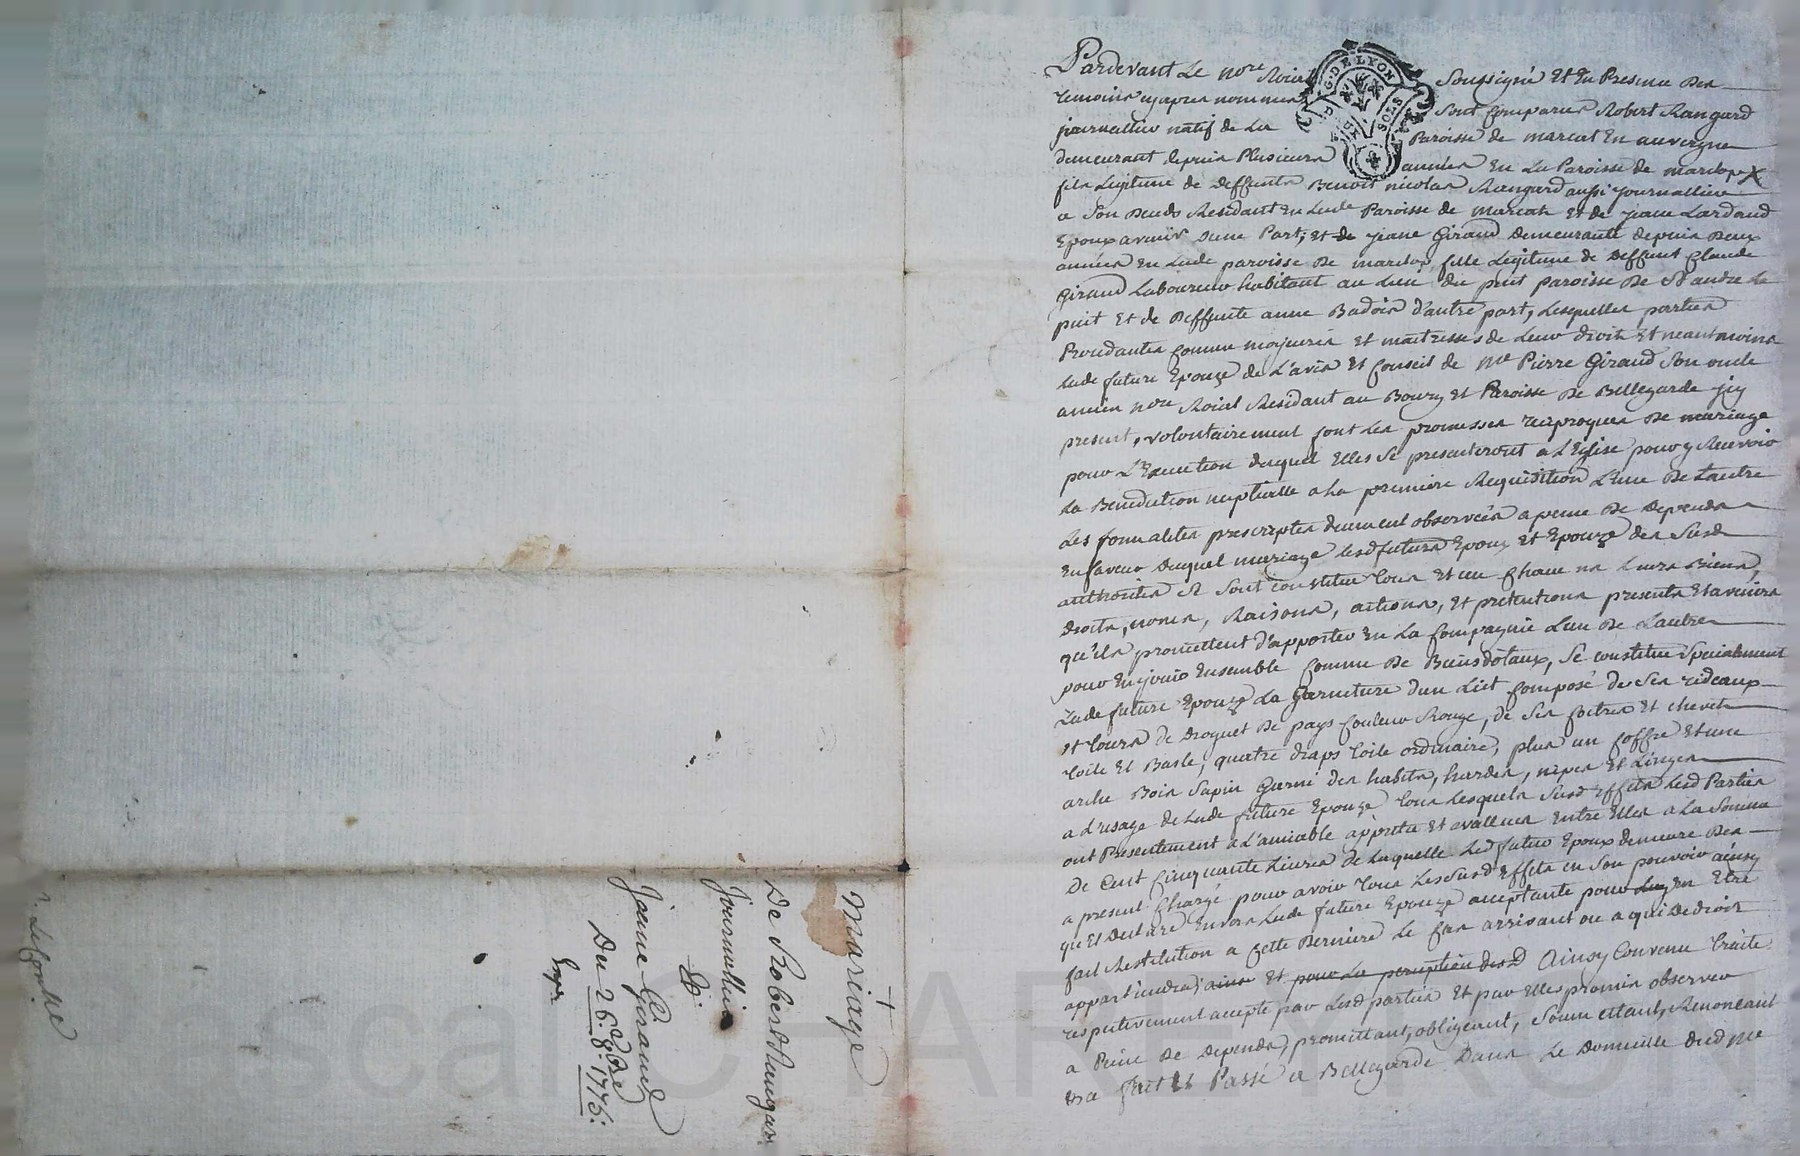 Pardevant Le nore Roial Soussigné Et En Presence Des
temoins cyapres nommés Sont Comparus Robert Rangard
journallier natif de La Paroisse de marcat En auvergne
demeurant depuis Plusieurs années En La Paroisse de
fils Legitime de deffunts Benoit nicolas Rangard aussi journallier
a Son deceds Residant En Lade Paroisse de marcat Et de jeane Lardaud
Epoux avenir dune Part; Et de jeane Giraud demeurante depuis deux
années En Lade paroisse de fille Legitime de deffunt Claude
Giraud Laboureur habitant au Lieu du puit paroisse de St andré Le
puit Et de deffunte anne Badois d'autre part, Lesquelles parties
Procedantes Comme majeures Et maitresses de Leur droits Et neantmoins
Lade future Epouze de L'avis Et Conseil de me Pierre Giraud Son oncle
ancien nore Roial Residant au Bourg Et Paroisse de Bellegarde jcy
present, volontairement font Les promesses reciproques de mariage
pour L'Execution duquel Elles Se presenteront a L'Eglise pour y Recevoir
La Benediction nuptialle a La premiere Requisition L'une de L'autre
Les formalités prescriptes dument observées a peine de depends
En faveur duquel mariage lesd futurs Epoux Et Epouze des Susd
authorités Se Sont Constitué tous Et un Chacun Leurs Biens,
droits, noms, Raisons, actions, Et pretentions presents Et avenirs
qu'ils promettent d'apporter En La Compagnie L'un de L'autre
pour En jouir Ensemble Comme de Biens dotaux, Se constitue Specialement
Lade future Epouze La Garniture d'un Lict Composé de Ses rideaux
et tours de droguet de pays Couleur Rouge, de Ses Coitres Et chevets
toile Et Basle, quatre draps toile ordinaire, plus un Coffre Et une
arche Bois Sapin Garni des habits, hardes, nipes Et Linges
a L'usage de Lade future Epouze tous Lesquels Susd Effets Lesd Parties
ont Presentement a L'amiable apprétié Et evallués Entre Elles a La Somme
De Cent Cinquante Livres de Laquelle Led futur Epoux demeure des
a present Chargé pour avoir tous Lesd Susd Effets En Son pouvoir ainsy
qu'Et declare Envers Lade future Epouze acceptante pour Luy En Etre
fait Restitution a Cette derniere Le Cas arrivant ou a qui de droit
appartiendra, ainsi Et pour La perception desd Ainsy Convenu traité
respectivement accepté par Lesd parties Et par Elles promis observer
a Peine de depends, promettant, obligeant, Soumettant, Renonceant
fait Et Passé a Bellegarde Dans Le Domicille dud Me
Mariage
De Robert Rangard
Journallier
&
Jeane Giraud
Du 26. 8bre 1775.